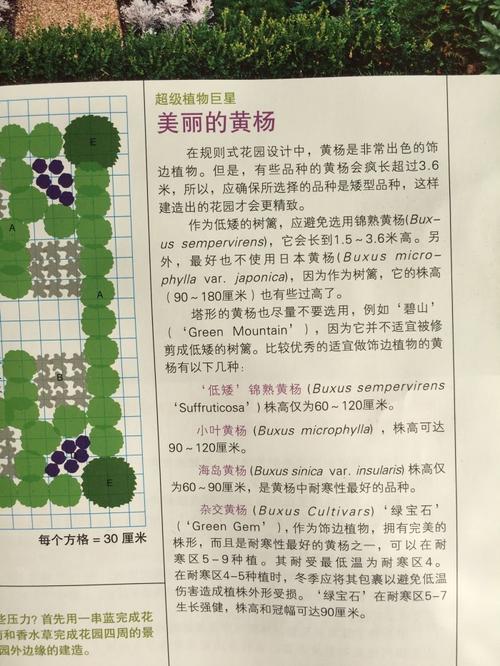 超级植物巨星
美丽的黄杨
在规则式花园设计中，黄杨是非常出色的饰
边植物。但是，有些品种的黄杨会疯长超过3.6
米，所以，应确保所选择的品种是矮型品种，这样
建造出的花园才会更精致。
作为低矮的树篱，应避免选用锦熟黄杨(Bux-
us sempervirens)，它会长到1.5～3.6米高。另
外，最好也不使用日本黄杨(Buxus micro-
phylla var. japonica)，因为作为树篱，它的株高
（90～180厘米）也有些过高了。
塔形的黄杨也尽量不要选用，例如‘碧山’
（‘Green Mountain’），因为它并不适宜被修
剪成低矮的树篱。比较优秀的适宜做饰边植物的黄
杨有以下几种：
‘低矮’锦熟黄杨 (Buxus sempervirens
‘Suffruticosa’) 株高仅为60～120厘米。
小叶黄杨 (Buxus microphylla) ，株高可达
90～120厘米。
海岛黄杨(Buxus sinica var. insularis) 株高仅
为60～90厘米，是黄杨中耐寒性最好的品种。
杂交黄杨 (Buxus Cultivars) ‘绿宝石’
(‘Green Gem’) ，作为饰边植物，拥有完美的
株形，而且是耐寒性最好的黄杨之一，可以在耐
寒区5-9种植。其耐受最低温为耐寒区4。
在耐寒区4-5种植时，冬季应将其包裹以避免低温
伤害造成植株外形受损。‘绿宝石’在耐寒区5-7
生长强健，株高和冠幅可达90厘米。
E
A
A
B
E
每个方格 = 30 厘米
些压力？首先用一串蓝完成花
和香水草完成花园四周的景
园外边缘的建造。